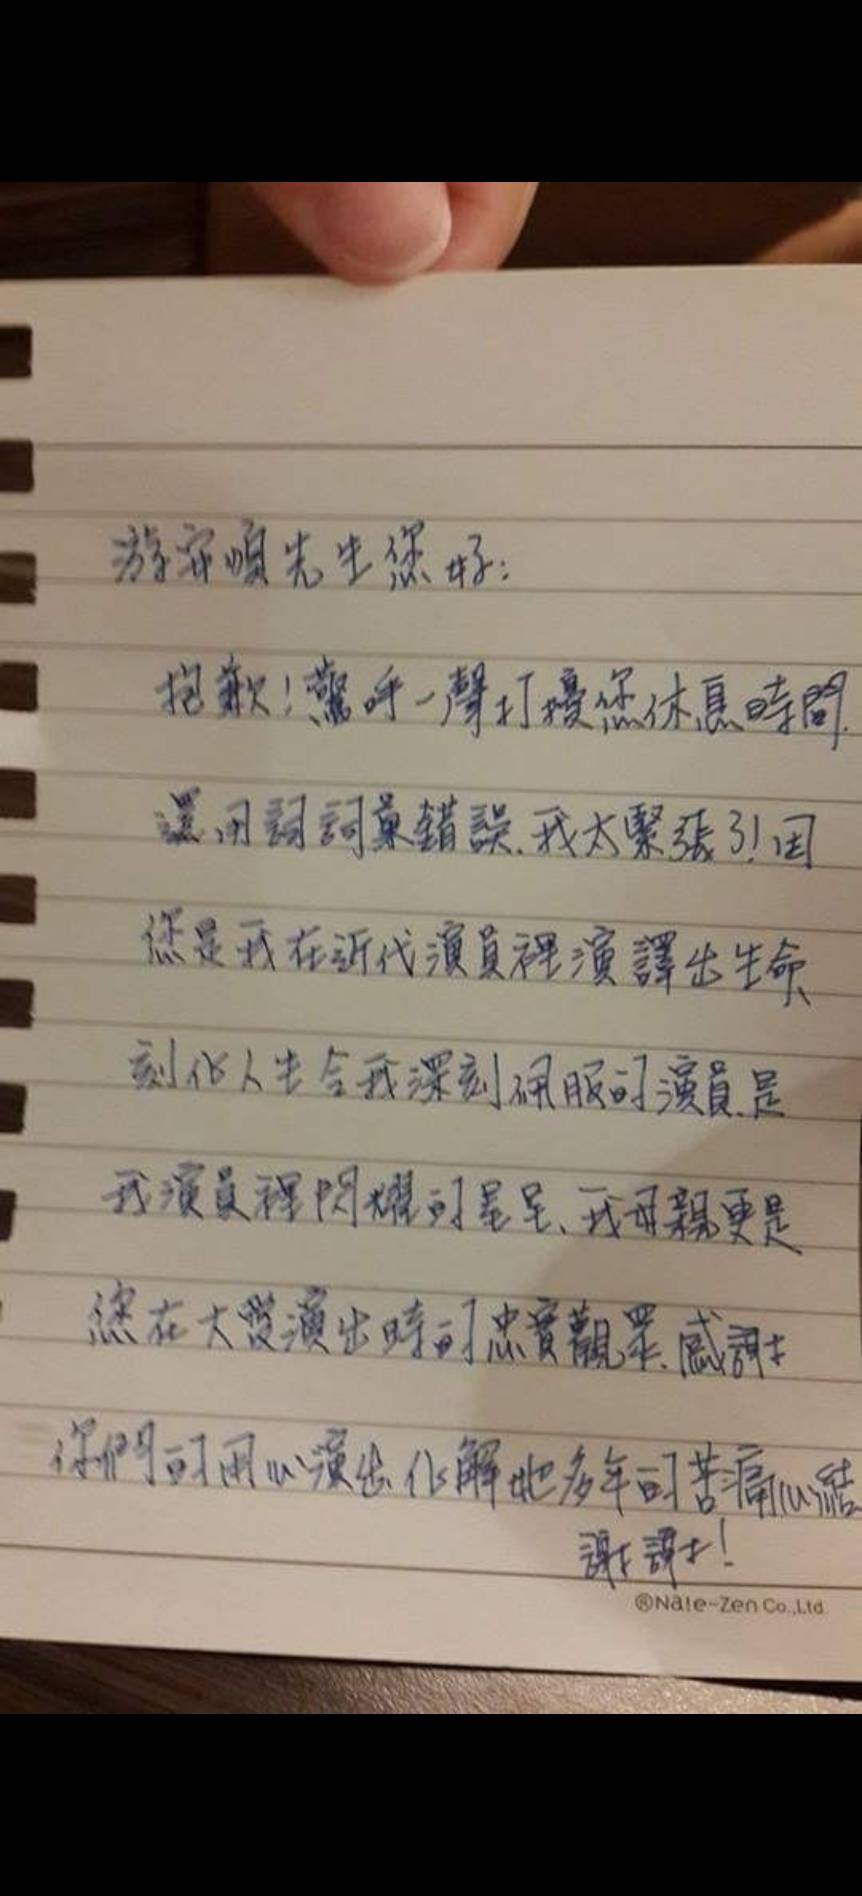 游安順先生您好:
抱歉!驚呼一聲打擾您休息時間.
還用詞詞彙錯誤.我太緊張了!因
您是我在近代演員裡演譯出生命、
刻化人生令我深刻佩服的演員.是
我演員裡閃耀的星星、我母親更是
您在大愛演出時的忠實觀眾.感謝
你們的用心演出化解她多年的苦痛心結
謝謝!
®Nate-Zen Co.,Ltd.